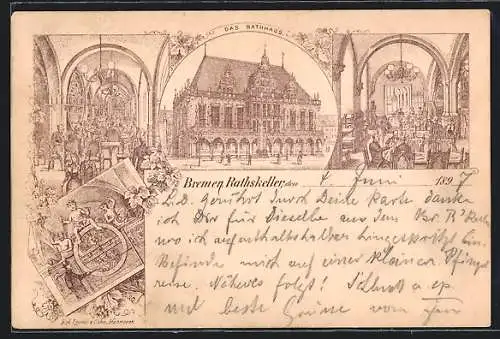 DAS RATHHAUS.
Bremen, Rathskeller, den 4. Juni 1897
L. D. Gerührt durch Deine Karte danke
ich Dir für Dieselbe aus dem Br. R' Kell
wo ich aufenthaltshalber hingespritzt bin.
Befinde mich auf einer kleinen Pfingst
reise. Näheres folgt!
und beste Grüsse vom